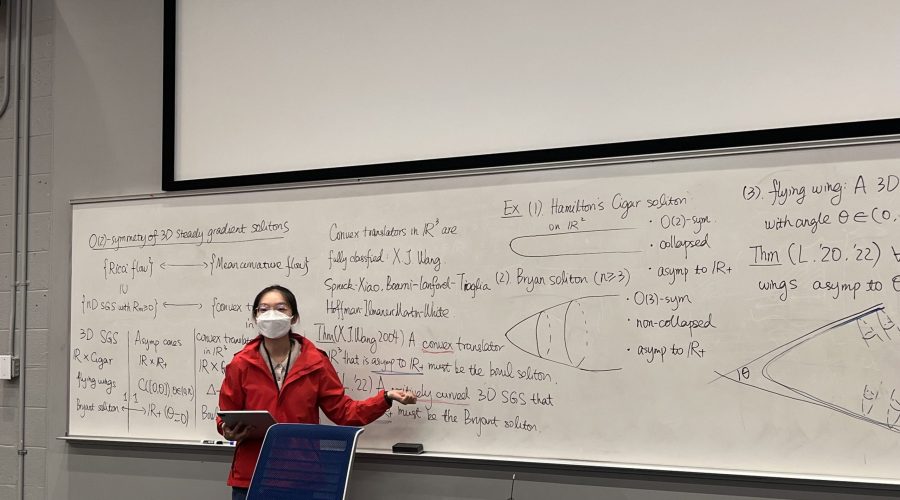 O(2)-symmetry of 3D steady gradient solitons
{Ricci flow} ⟷ {Mean curvature flow}
∪
{nD SGS with Rm≥0} ⟷ {convex
in
3D SGS
IR × Cigar
flying wings
Bryant soliton
Asymp cones
IR × IR+
C([0,θ]), θ∈(0,π)
IR+ (θ=0)
1 1
convex translators
in IR³
Δ-
Bowl
Convex translators in IR³ are
fully classified: X.J. Wang
Spruck-Xiao, Bourni-Langford-Tinaglia
Hoffman-Ilmanen-Martin-White
Thm (X.J. Wang 2004) A convex translator
IR³ that is asymp to IR+ must be the bowl soliton.
L. '22) A positively curved 3D SGS that
must be the Bryant soliton.
Ex (1). Hamilton's Cigar soliton
on IR²
• O(2)-sym.
• collapsed
• asymp to IR+
(2). Bryan soliton (n≥3)
• O(3)-sym
• non-collapsed
• asymp to IR+
(3). flying wing: A 3D
with angle θ∈(0,
Thm (L. '20. '22) ∀
wings asymp to
θ